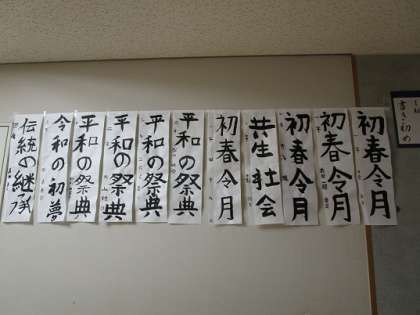 書き初め
初春令月
初春令月
初春令月
共生社会
初春令月
平和の祭典
平和の祭典
平和の祭典
平和の祭典
令和の初夢
伝統の継承